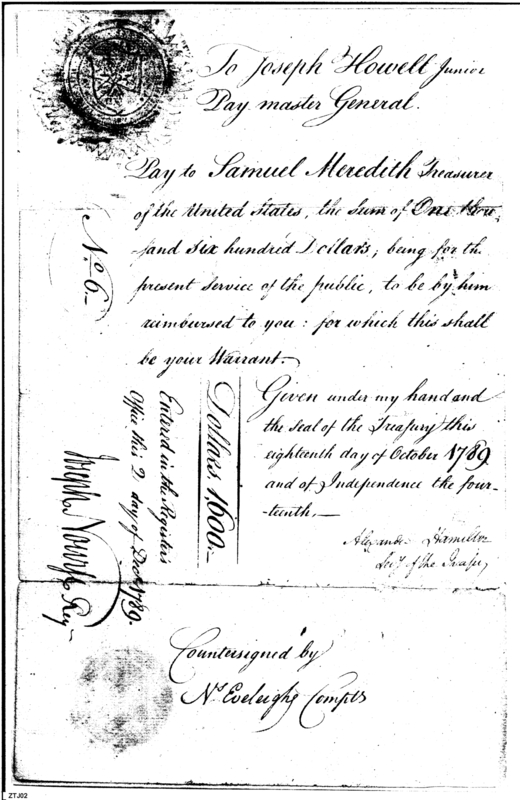 To Joseph Howell Junior
Pay master General.
Pay to Samuel Meredith Treasurer
of the United States, the Sum of One thou-
sand six hundred Dollars; being for the
present Service of the public, to be by him
reimbursed to you: for which this shall
be your Warrant.
Given under my hand and
the seal of the Treasury this
eighteenth day of October 1789
and of Independence the four-
-teenth.
Alexander Hamilton
Secy of the Treasury
No. 6
Dollars 1,600
Entered in the Register's
Office this 2 day of Decr 1789.
Joseph Nourse Reg
Countersigned by
Ns Eveleigh Comptr
ZTJ02